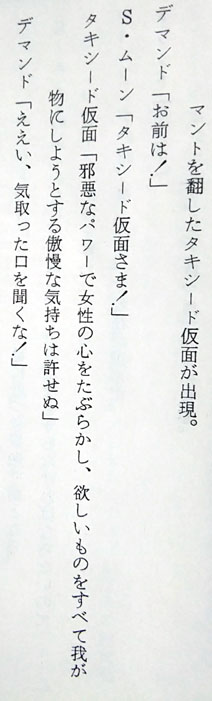 マントを翻したタキシード仮面が出現。
デマンド「お前は！」
S・ムーン「タキシード仮面さま！」
タキシード仮面「邪悪なパワーで女性の心をたぶらかし、欲しいものをすべて我が
物にしようとする傲慢な気持ちは許せぬ」
デマンド「ええい、気取った口を聞くな！」